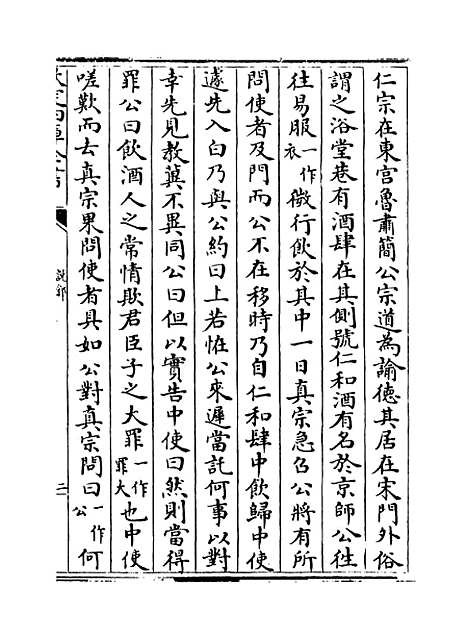 仁宗在東宫魯肅簡公宗道為諭德其居在宋門外俗
謂之浴堂巷有酒肆在其側號仁和酒有名於京師公徃
徃易服一作衣微行飲於其中一日真宗急召公將有所
問使者及門而公不在移時乃自仁和肆中飲歸中使
遽先入白乃與公約曰上若怪公來遲當託何事以對
幸先見教冀不異同公曰但以實告中使曰然則當得
罪公曰飲酒人之常情欺君臣子之大罪一作罪大也中使
嗟歎而去真宗果問使者具如公對真宗問曰一作公何
欽定四庫全書
說郛
二